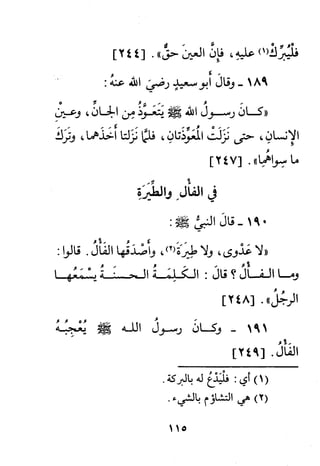 فَلْيُبَرِّكْ(١) عليهِ، فإنَّ العينَ حقٌّ». [٢٤٤]
١٨٩ - وقال أبو سعيدٍ رضيَ اللهُ عنهُ:
«كـانَ رسـولُ اللهِ ﷺ يَتَعَوَّذُ مِنَ الجـانِّ، وعـينِ
الإنسانِ، حتى نَزَلَتْ المُعَوِّذتانِ، فلمَّا نَزَلتا أخَذَهما، وتَركَ
ما سِواهُما». [٢٤٧]
في الفألِ والطِّيَرَةِ
١٩٠ - قالَ النبيُّ ﷺ:
«لا عَدْوى، ولا طِيَرَةَ(٢)، وأَصْدَقُها الفَأْلُ. قالوا:
ومـا الـفـألُ؟ قالَ: الـكَـلِـمَـةُ الـحـسـنَـةُ يسْمَعُـهـا
الرجُلُ». [٢٤٨]
١٩١ - وكـانَ رسـولُ اللـهِ ﷺ يُعْجِبُـهُ
الفَألُ. [٢٤٩]
(١) أي: فَلْيَدْعُ له بالبركة.
(٢) هي التشاؤم بالشيء.
١١٥